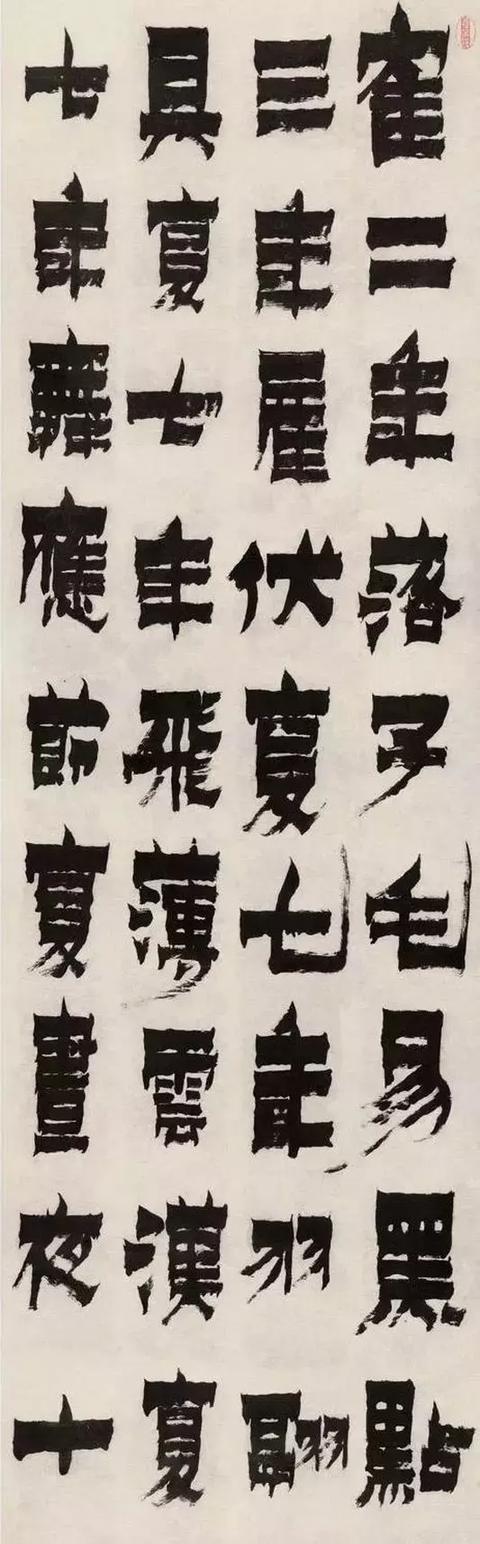 隺二年落子毛易黑點
三年雇伏夏七年羽翮
具夏七年飛薄雲漢夏
七年舞應節夏晝夜十